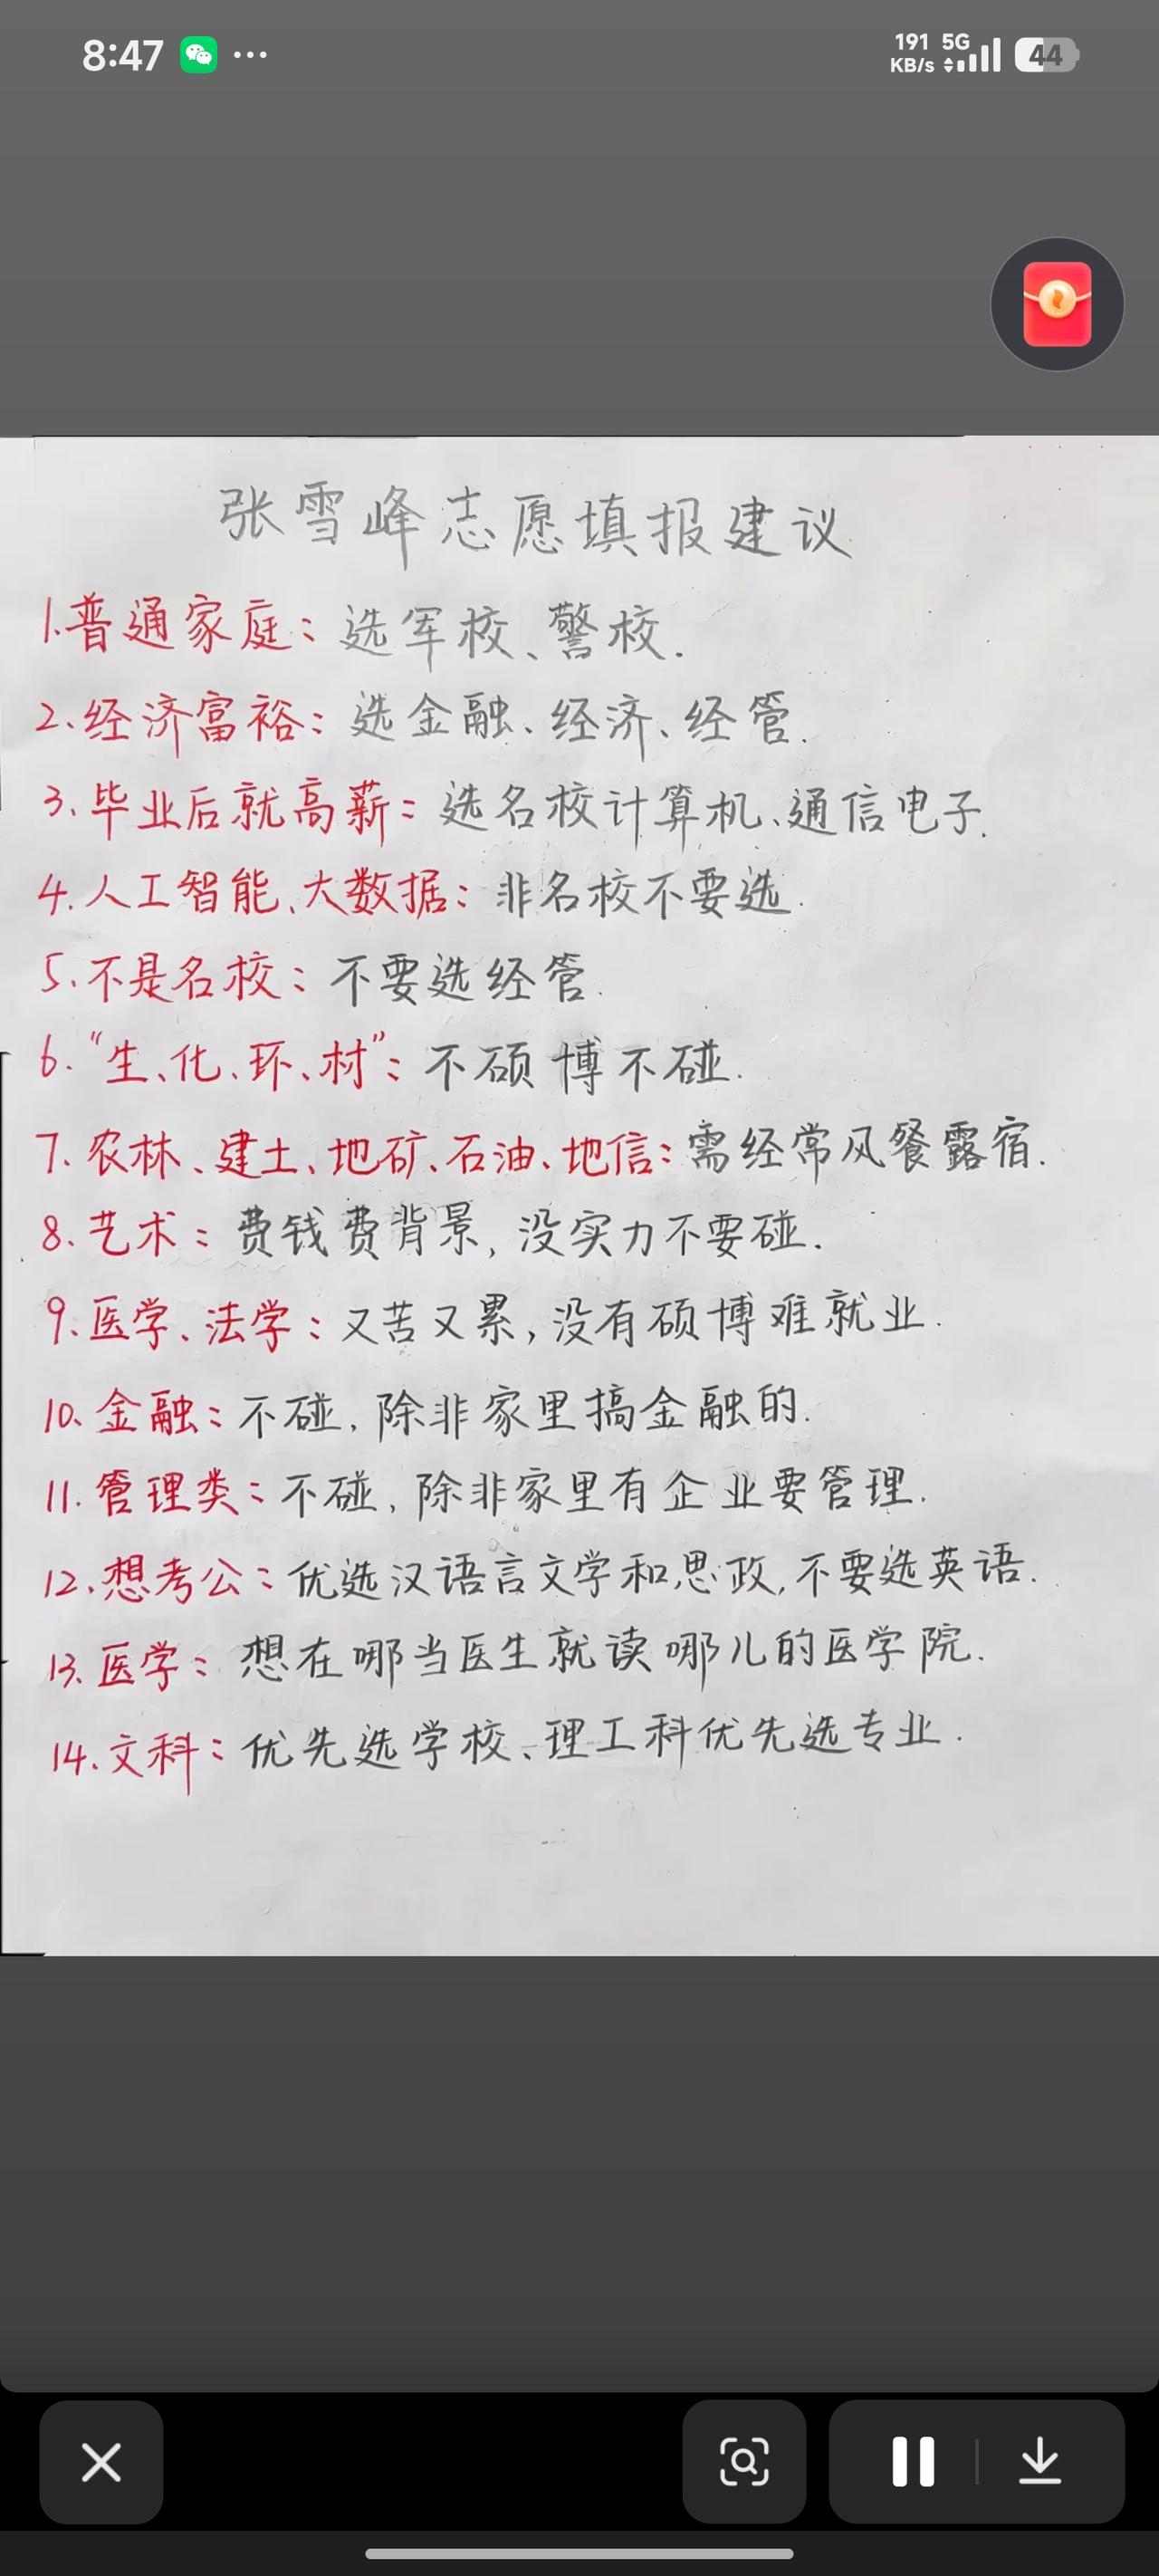 8:47
191 5G
KB/s
44
张雪峰志愿填报建议
1.普通家庭：选军校、警校.
2.经济富裕：选金融、经济、经管.
3.毕业后就高薪：选名校计算机、通信电子.
4.人工智能、大数据：非名校不要选.
5.不是名校：不要选经管.
6.“生、化、环、材”：不硕博不碰.
7.农林、建土、地矿、石油、地信：需经常风餐露宿.
8.艺术：费钱费背景，没实力不要碰.
9.医学、法学：又苦又累，没有硕博难就业.
10.金融：不碰，除非家里搞金融的.
11.管理类：不碰，除非家里有企业要管理.
12.想考公：优选汉语言文学和思政，不要选英语.
13.医学：想在哪当医生就读哪儿的医学院.
14.文科：优先选学校、理工科优先选专业.